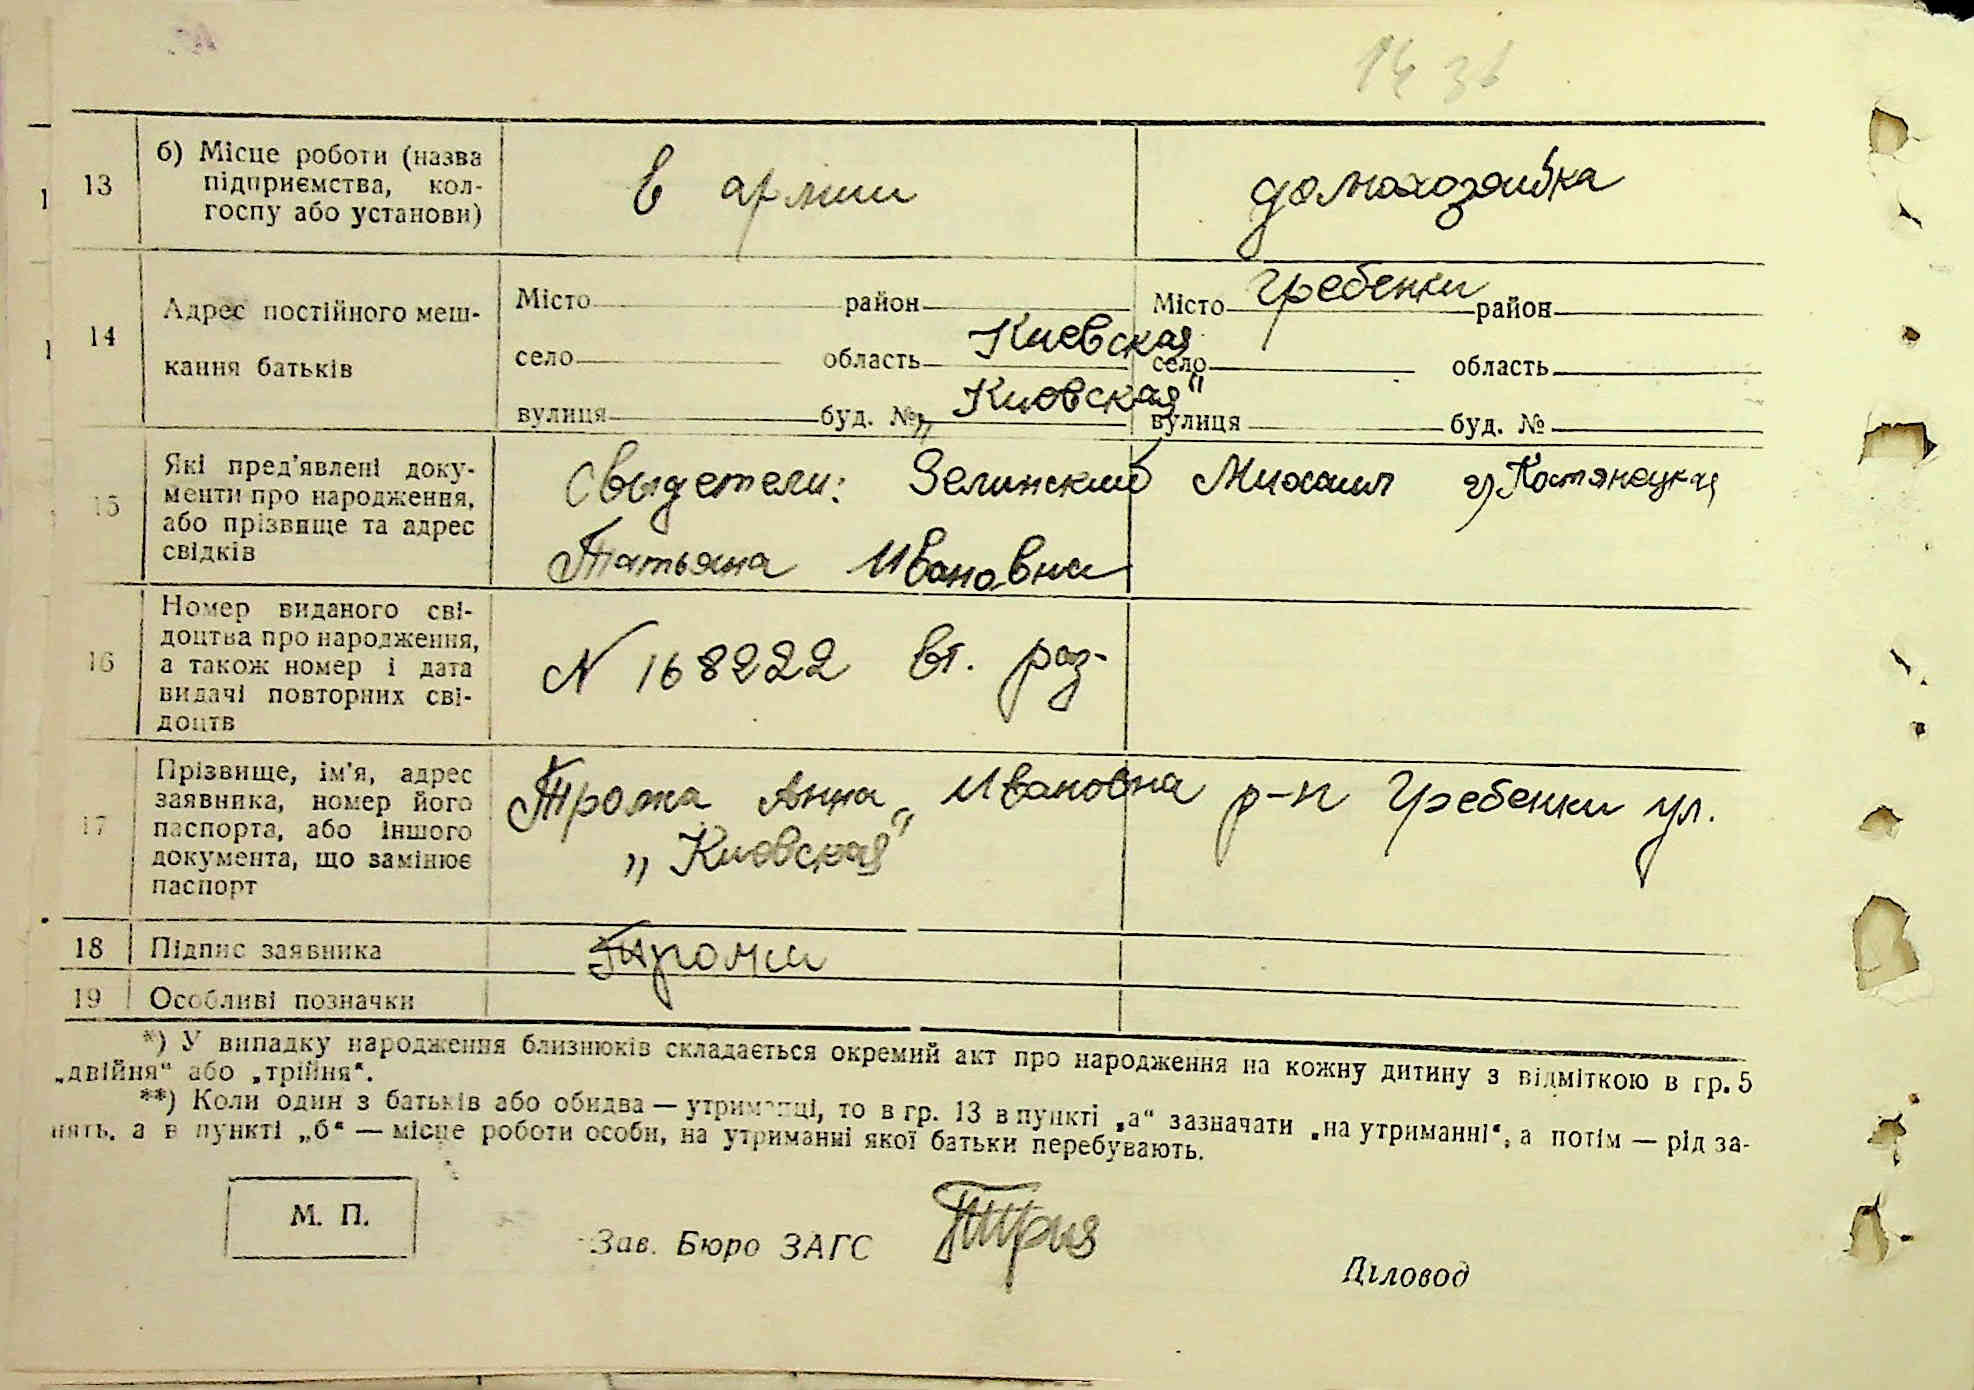 13
б) Місце роботи (назва
підприємства, кол-
госпу або установи)
в армии
домохозяйка
14
Адрес постійного меш-
кання батьків
Місто район
село область Киевская
вулиця буд. № „Киовская"
Місто Гребенки район
село область
вулиця буд. №
15
Які пред'явлені доку-
менти про народження,
або прізвище та адрес
свідків
Свидетели: Зелинский Михаил 2) Костянецкая
Татьяна Ивановна
16
Номер виданого сві-
доцтва про народження,
а також номер і дата
видачі повторних сві-
доцтв
N 168222 вт. раз-
17
Прізвище, ім'я, адрес
заявника, номер його
паспорта, або іншого
документа, що замінює
паспорт
Анна Ивановна р-п Гребенки ул.
„Киовская"
18
Підпис заявника
19
Особливі позначки
*) У випадку народження близнюків складається окремий акт про народження на кожну дитину з відміткою в гр. 5
„двійня" або „трійня".
**) Коли один з батьків або обидва — утриманці, то в гр. 13 в пункті „а" зазначати „на утриманні", а потім — рід за-
нять, а в пункті „б" — місце роботи особи, на утриманні якої батьки перебувають.
М. П.
Зав. Бюро ЗАГС
Діловод